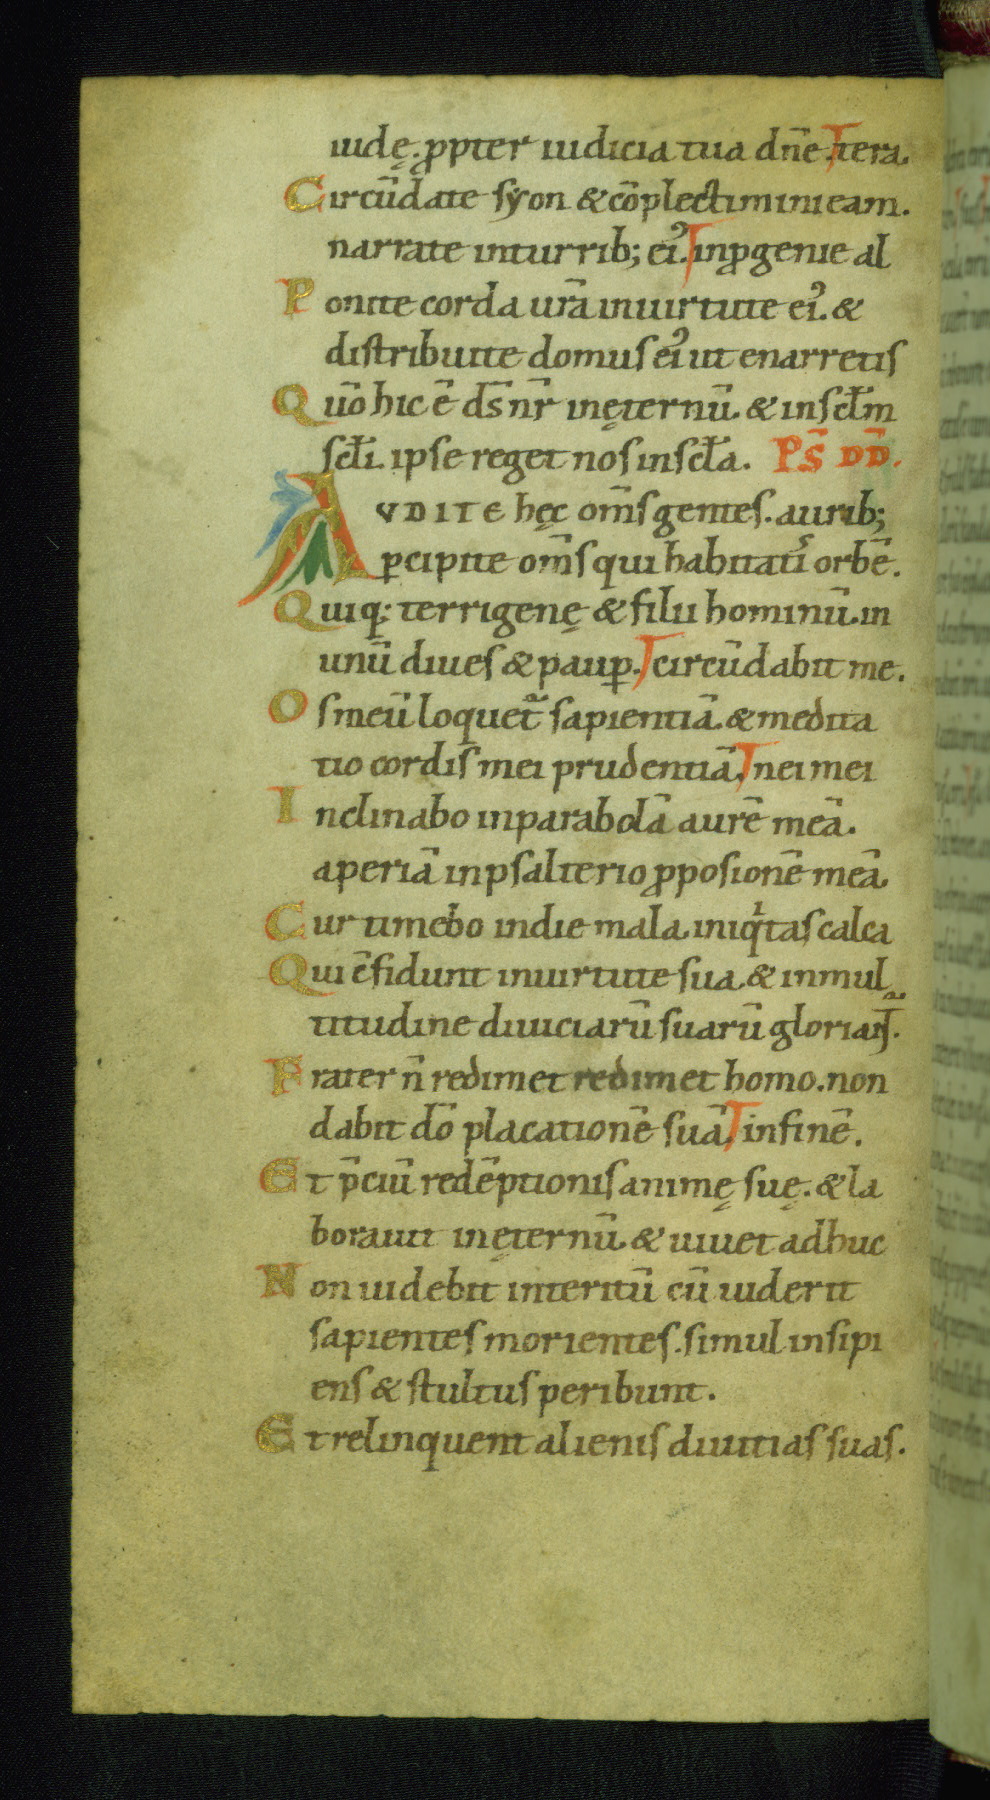 iudę. ꝓpter iudicia tua dn̄e. tera.
Circūdate sẏon & cōplectimini eam.
narrate in turrib; eiꝰ. in ꝓgenie al
Ponite corda ur̄a in uirtute eiꝰ. &
distribuite domus eiꝰ ut enarretis
Qūo hic ē ds̄ nr̄ in ęternū. & in scl̄m
scl̄i. ipse reget nos in scl̄a. PS̄ DD̄.
AVDITE hęc om̄s gentes. aurib;
ꝑcipite om̄s qui habitatis orbē.
Quiq; terrigenę & filii hominū. in
unū diues & pauꝑ. circūdabit me.
Os meū loquet᷑ sapientiā. & medita
tio cordis mei prudentiā. nei mei
Inclinabo in parabolā aurē meā.
aperiā in psalterio ꝓposionē meā
Cur timebo in die mala. iniqͥtas calca
Qui ɔfidunt in uirtute sua. & in mul
titudine diuiciarū suarū gloriant᷑.
Frater n̄ redimet redimet homo. non
dabit dō placationē suā. in finē.
Et p̄ciū redēptionis animę suę. & la
borauit in ęternū. & uiuet adhuc
Non uidebit interitū cū uiderit
sapientes morientes. simul insipi
ens & stultus peribunt.
Et relinquent alienis diuitias suas.